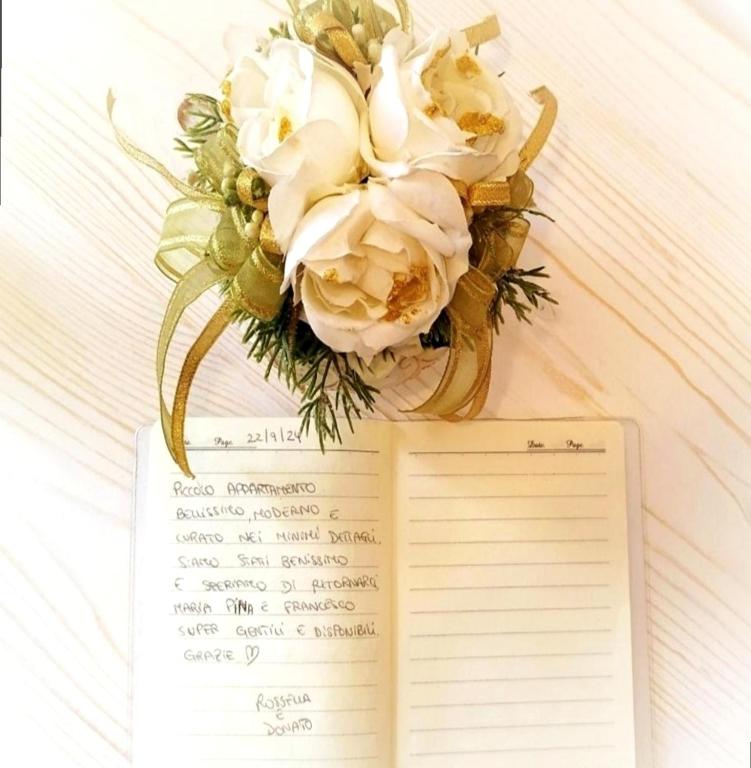 Page 22/9/24
Date Page
PICCOLO APPARTAMENTO
BELLISSIMO, MODERNO E
CURATO NEI MINIMI DETTAGLI,
SIAMO STATI BENISSIMO
E SPERIAMO DI RITORNARCI
MARIA PINA E FRANCESCO
SUPER GENTILI E DISPONIBILI.
GRAZIE ♡
ROSSELLA
E
DONATO